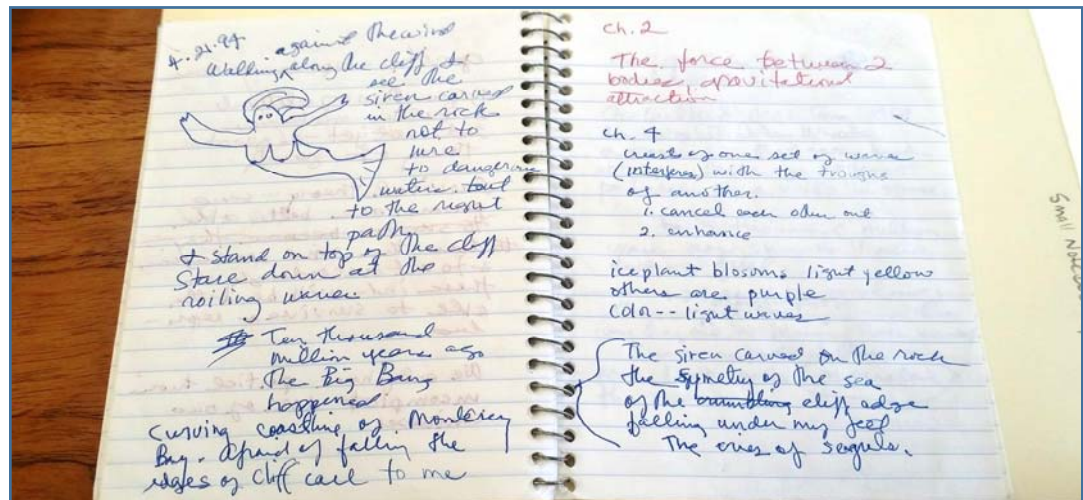 4.21.94
against the wind
Walking along the cliff I
see the
siren carved
in the rock
not to
lure
to dangerous
waters but
to the right
path
I stand on top of the cliff
Stare down at the
roiling waves
Ten thousand
million years ago
The Big Bang
happened
Curving coastline of Monterey
Bay. Afraid of falling the
edges of cliff call to me
ch. 2
The force between 2
bodies, gravitational
attraction
ch. 4
crests of one set of waves
(interferes) with the troughs
of another.
1. cancel each other out
2. enhance
iceplant blossoms light yellow
others are purple
color -- light waves
The siren carved on the rock
the symetry of the sea
of the crumbling cliff edge
falling under my feet
The cries of seagulls.
Small